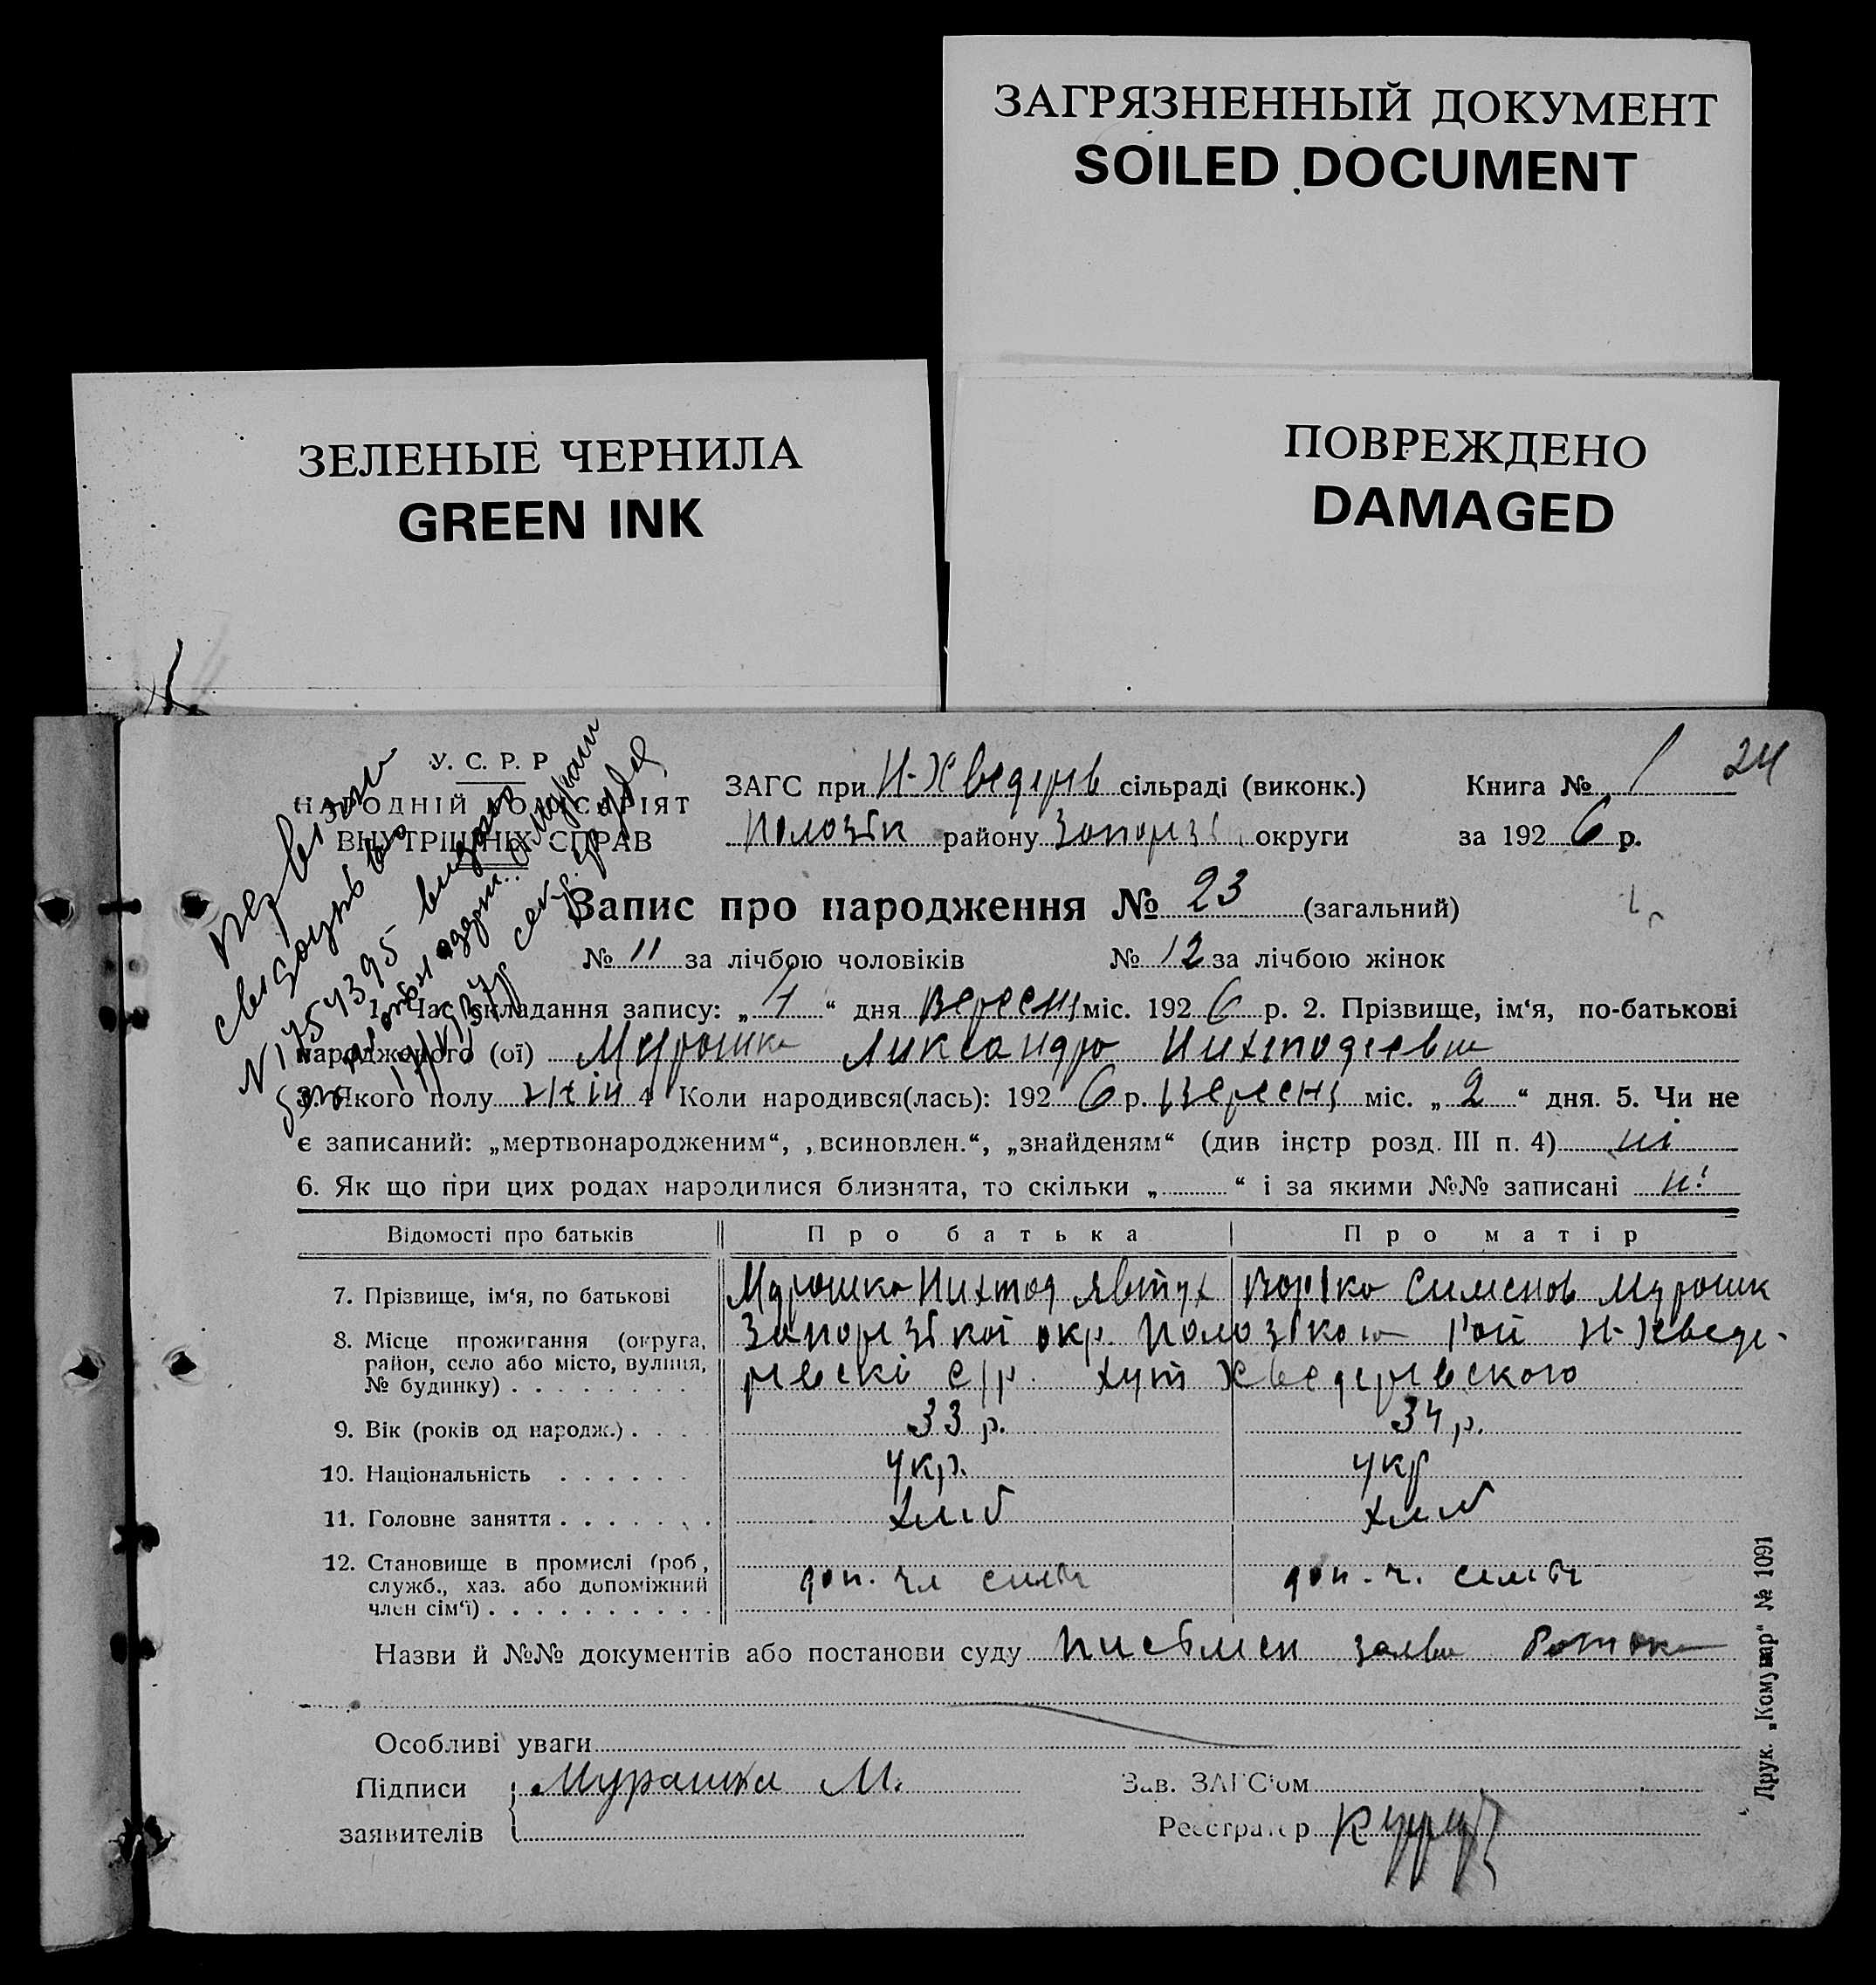 ЗАГРЯЗНЕННЫЙ ДОКУМЕНТ
SOILED DOCUMENT
ЗЕЛЕНЫЕ ЧЕРНИЛА
GREEN INK
ПОВРЕЖДЕНО
DAMAGED
24
У. С. Р. Р
НАРОДНІЙ КОМІСАРІЯТ
ВНУТРІШНІХ СПРАВ
ЗАГС при Н-Хведерів сільраді (виконк.) Книга № 1
Полозьк району Запорізь округи за 1926 р.
Запис про народження № 23 (загальний)
№ 11 за лічбою чоловіків № 12 за лічбою жінок
1. Час складання запису: „4“ дня Вересня міс. 1926 р. 2. Прізвище, ім‘я, по-батькові
народженого (ої) Мурошка Ликсандра
3. Якого полу жін 4 Коли народився(лась): 1926 р. Вересня міс. „2“ дня. 5. Чи не
є записаний: „мертвонародженим“, „всиновлен.“, „знайденям“ (див інстр розд. III п. 4) ні
6. Як що при цих родах народилися близнята, то скільки „ “ і за якими №№ записані ні
Відомості про батьків Про батька Про матір
7. Прізвище, ім‘я, по батькові Мурошка Явтух Сименов Мурошк
8. Місце прожигання (округа, район, село або місто, вулиця, № будинку) Запорізької окр. Полозького р-ой Н-Хведе-
ревскі с/р. хут Хведеревского
9. Вік (років од народж.) 33 р. 34 р.
10. Національність укр. укр
11. Головне заняття хліб хліб
12. Становище в промислі (роб., служб., хаз. або допоміжний член сім‘ї) доп. чл симьі доп. ч. симьі
Назви й №№ документів або постанови суду письмен заява
Особливі уваги
Підписи Мурашка М.
заявителів
Зав. ЗАГС‘ом
Реєстратор
Друк. „Комунар“ № 1091